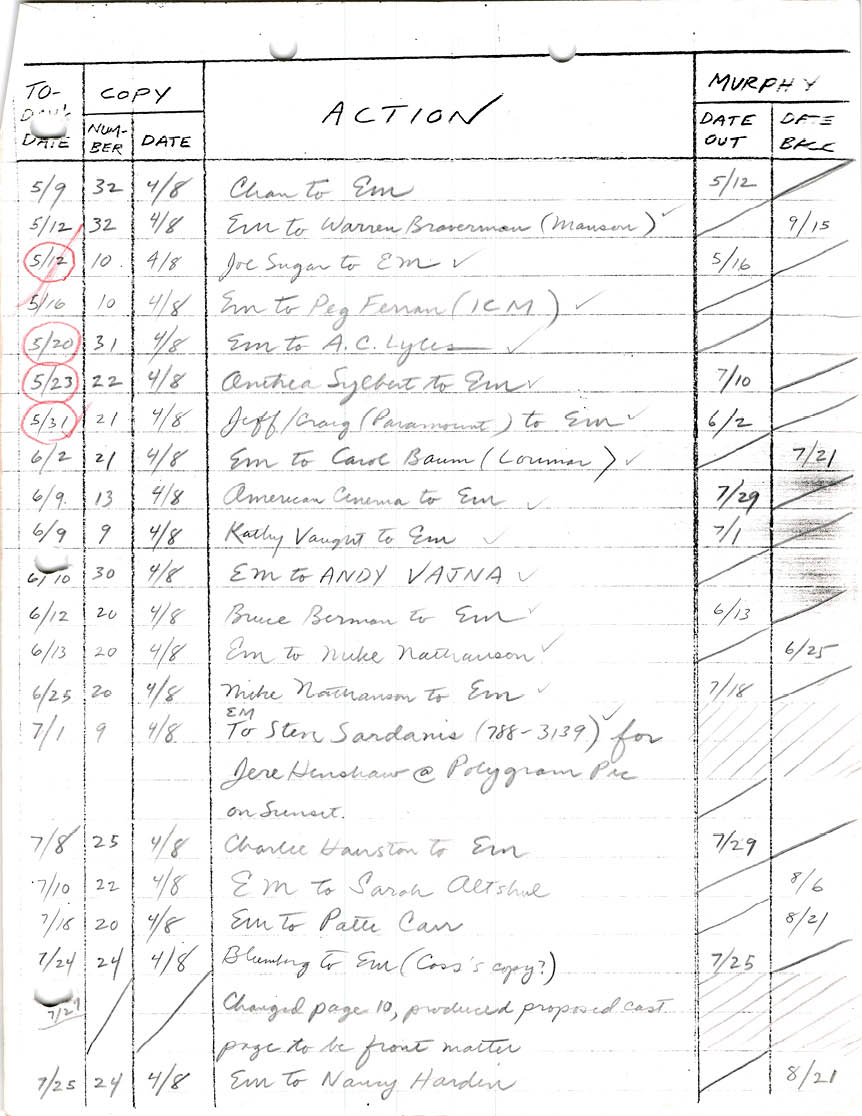 TO-DAY'S DATE COPY NUM-BER DATE ACTION MURPHY DATE OUT DATE BACK
5/9 32 4/8 Chan to Em 5/12
5/12 32 4/8 Em to Warren Braverman (Manson) ✓ 9/15
5/12 10 4/8 Joe Sugar to EM ✓ 5/16
5/16 10 4/8 Em to Peg Ferran (ICM) ✓
5/20 31 4/8 Em to A.C. Lyles ✓
5/23 22 4/8 Anthea Sylbert to Em ✓ 7/10
5/31 21 4/8 Jeff/Craig (Paramount) to Em ✓ 6/2
6/2 21 4/8 Em to Carol Baum (Lorimar) ✓ 7/21
6/9 13 4/8 American Cinema to Em ✓ 7/29
6/9 9 4/8 Kathy Vaught to Em ✓ 7/1
6/10 30 4/8 EM to ANDY VAJNA ✓
6/12 20 4/8 Bruce Berman to Em ✓ 6/13
6/13 20 4/8 Em to Mike Nathanson ✓ 6/25
6/25 20 4/8 Mike Nathanson to Em ✓ 7/18
EM
7/1 9 4/8 To Sten Sardanis (788-3139) ✓ for
Jere Henshaw @ Polygram Pic
on Sunset.
7/8 25 4/8 Charlie Hairston to Em 7/29
7/10 22 4/8 EM to Sarah Altshul 8/6
7/18 20 4/8 Em to Patti Carr 8/21
7/24 24 4/8 Blumberg to Em (Cass's copy?) 7/25
7/27 Changed page 10, produced proposed cast
page to be front matter
7/25 24 4/8 Em to Nancy Hardin 8/21